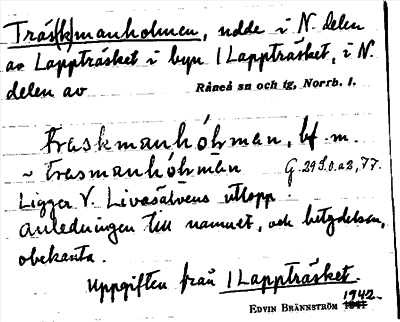 Träs(k)manholmen, udde i N. delen
av Lappträsket i byn 1 Lappträsket, i N.
delen av Råneå sn och tg, Norrb. l.
traskmanhólman, bf. m.
~ trasmanhólmän G. 29 S.0.a2, 77.
Ligger V. Livasälvens utlopp.
Anledningen till namnet, och betydelsen,
obekanta.
Uppgiften från 1 Lappträsket.
1942.
EDVIN BRÄNNSTRÖM 1941